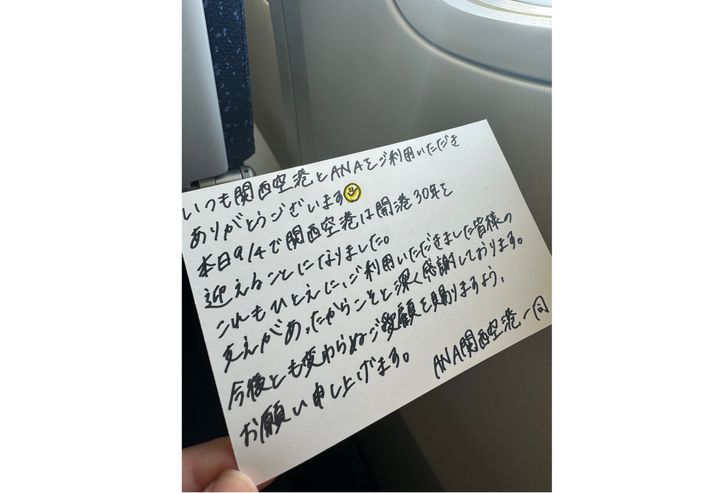 いつも関西空港とANAをご利用いただき
ありがとうございます
本日9/4で関西空港は開港30年を
迎えることになりました。
これもひとえに、ご利用いただきました皆様の
支えがあったからこそと深く感謝しております。
今後とも変わらぬご愛顧を賜りますよう、
お願い申し上げます。
ANA関西空港一同